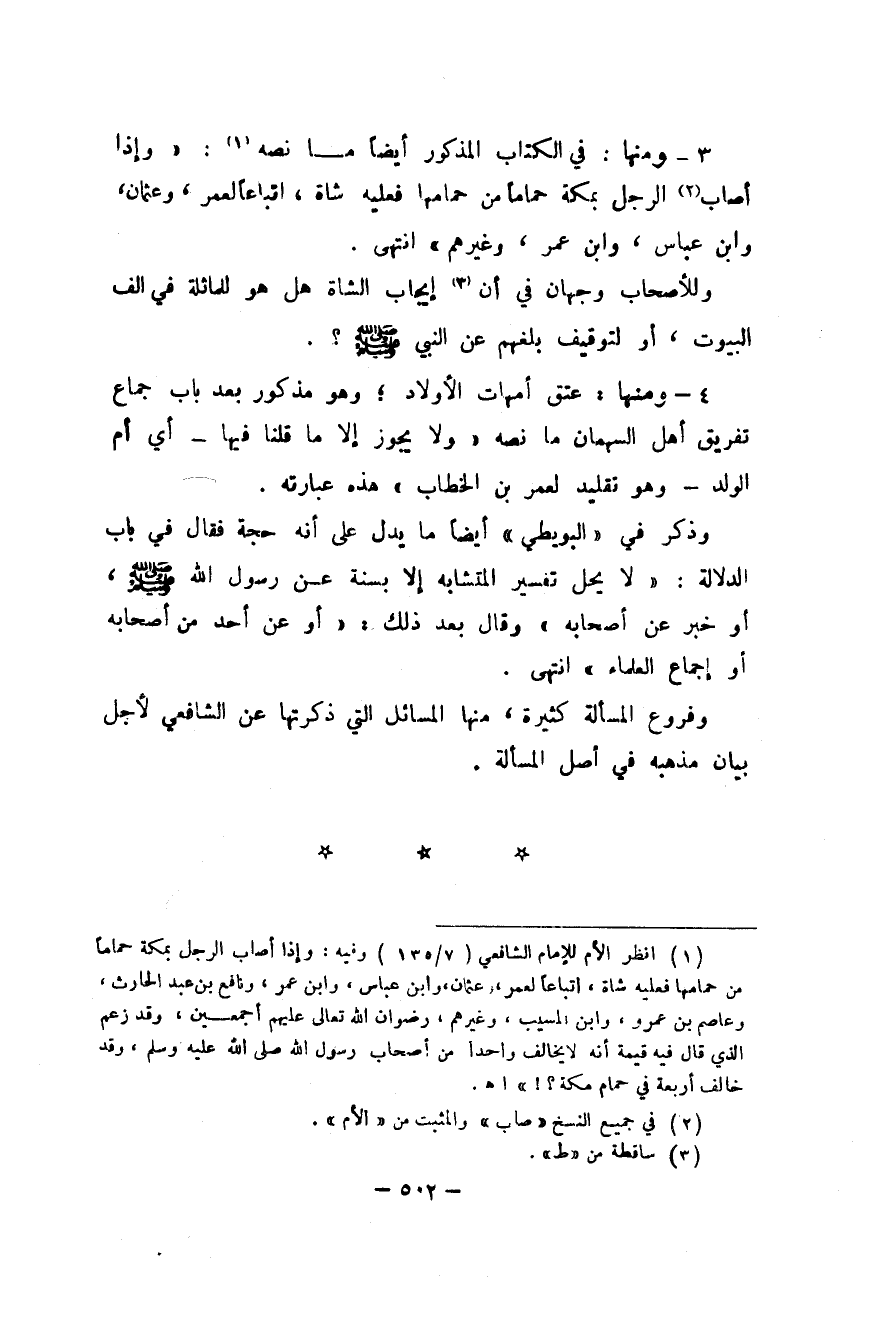 ٣ – ومنها : في الكتاب المذكور أيضاً مـــا نصه (١) : « وإذا
أصاب(٢) الرجل بمكة حماماً من حمامها فعليه شاة ، اتباعاً لعمر ، وعثمان،
وابن عباس ، وابن عمر ، وغيرهم » انتهى .
وللأصحاب وجهان في أن (٣) إيجاب الشاة هل هو للماثلة في الف
البيوت ، أو لتوقيف بلغهم عن النبي ﷺ ؟ .
٤ – ومنها : عتق أمهات الأولاد ؛ وهو مذكور بعد باب جماع
تفريق أهل السهمان ما نصه « ولا يجوز إلا ما قلنا فيها – أي أم
الولد – وهو تقليد لعمر بن الخطاب » هذه عبارته .
وذكر في «البويطي» أيضاً ما يدل على أنه حجة فقال في باب
الدلالة : « لا يحل تفسير المتشابه إلا بسنة عـن رسول الله ﷺ ،
أو خبر عن أصحابه » وقال بعد ذلك : « أو عن أحد من أصحابه
أو إجماع العلماء » انتهى .
وفروع المسألة كثيرة ، منها المسائل التي ذكرتها عن الشافعي لأجل
بيان مذهبه في أصل المسألة .
☆ ☆ ☆
(١) انظر الأم للإمام الشافعي ( ٧/١٣٥ ) وفيه : وإذا أصاب الرجل بمكة حماماً
من حمامها فعليه شاة ، اتباعاً لعمر ، عثمان،وابن عباس ، وابن عمر ، ونافع بن عبد الحارث ،
وعاصم بن عمرو ، وابن المسيب ، وغيرهم ، رضوان الله تعالى عليهم أجمعـــين ، وقد زعم
الذي قال فيه قيمة أنه لايخالف واحداً من أصحاب رسول الله صلى الله عليه وسلم ، وقد
خالف أربعة في حمام مكة ؟ ! » ا ه .
(٢) في جميع النسخ «صاب» والمثبت من « الأم » .
(٣) ساقطة من «ط» .
– ٥٠٢ –